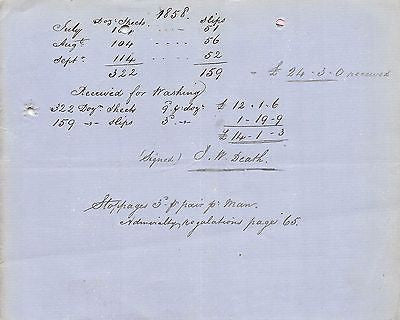 1858.
Dozn Sheets slips
July 104 .... 51
Augt 104 .... 56
Septr 114 .... 52
322 159 = £24-3-0 received
Received for Washing
322 Dozn Sheets 9d p doz £12-1-6
159 -"- slips 3d -"- 1-19-9
£14-1-3
Signed) J. W. Death.
Stoppages 3d p pair pr Man.
Admiralty regulations page 65.